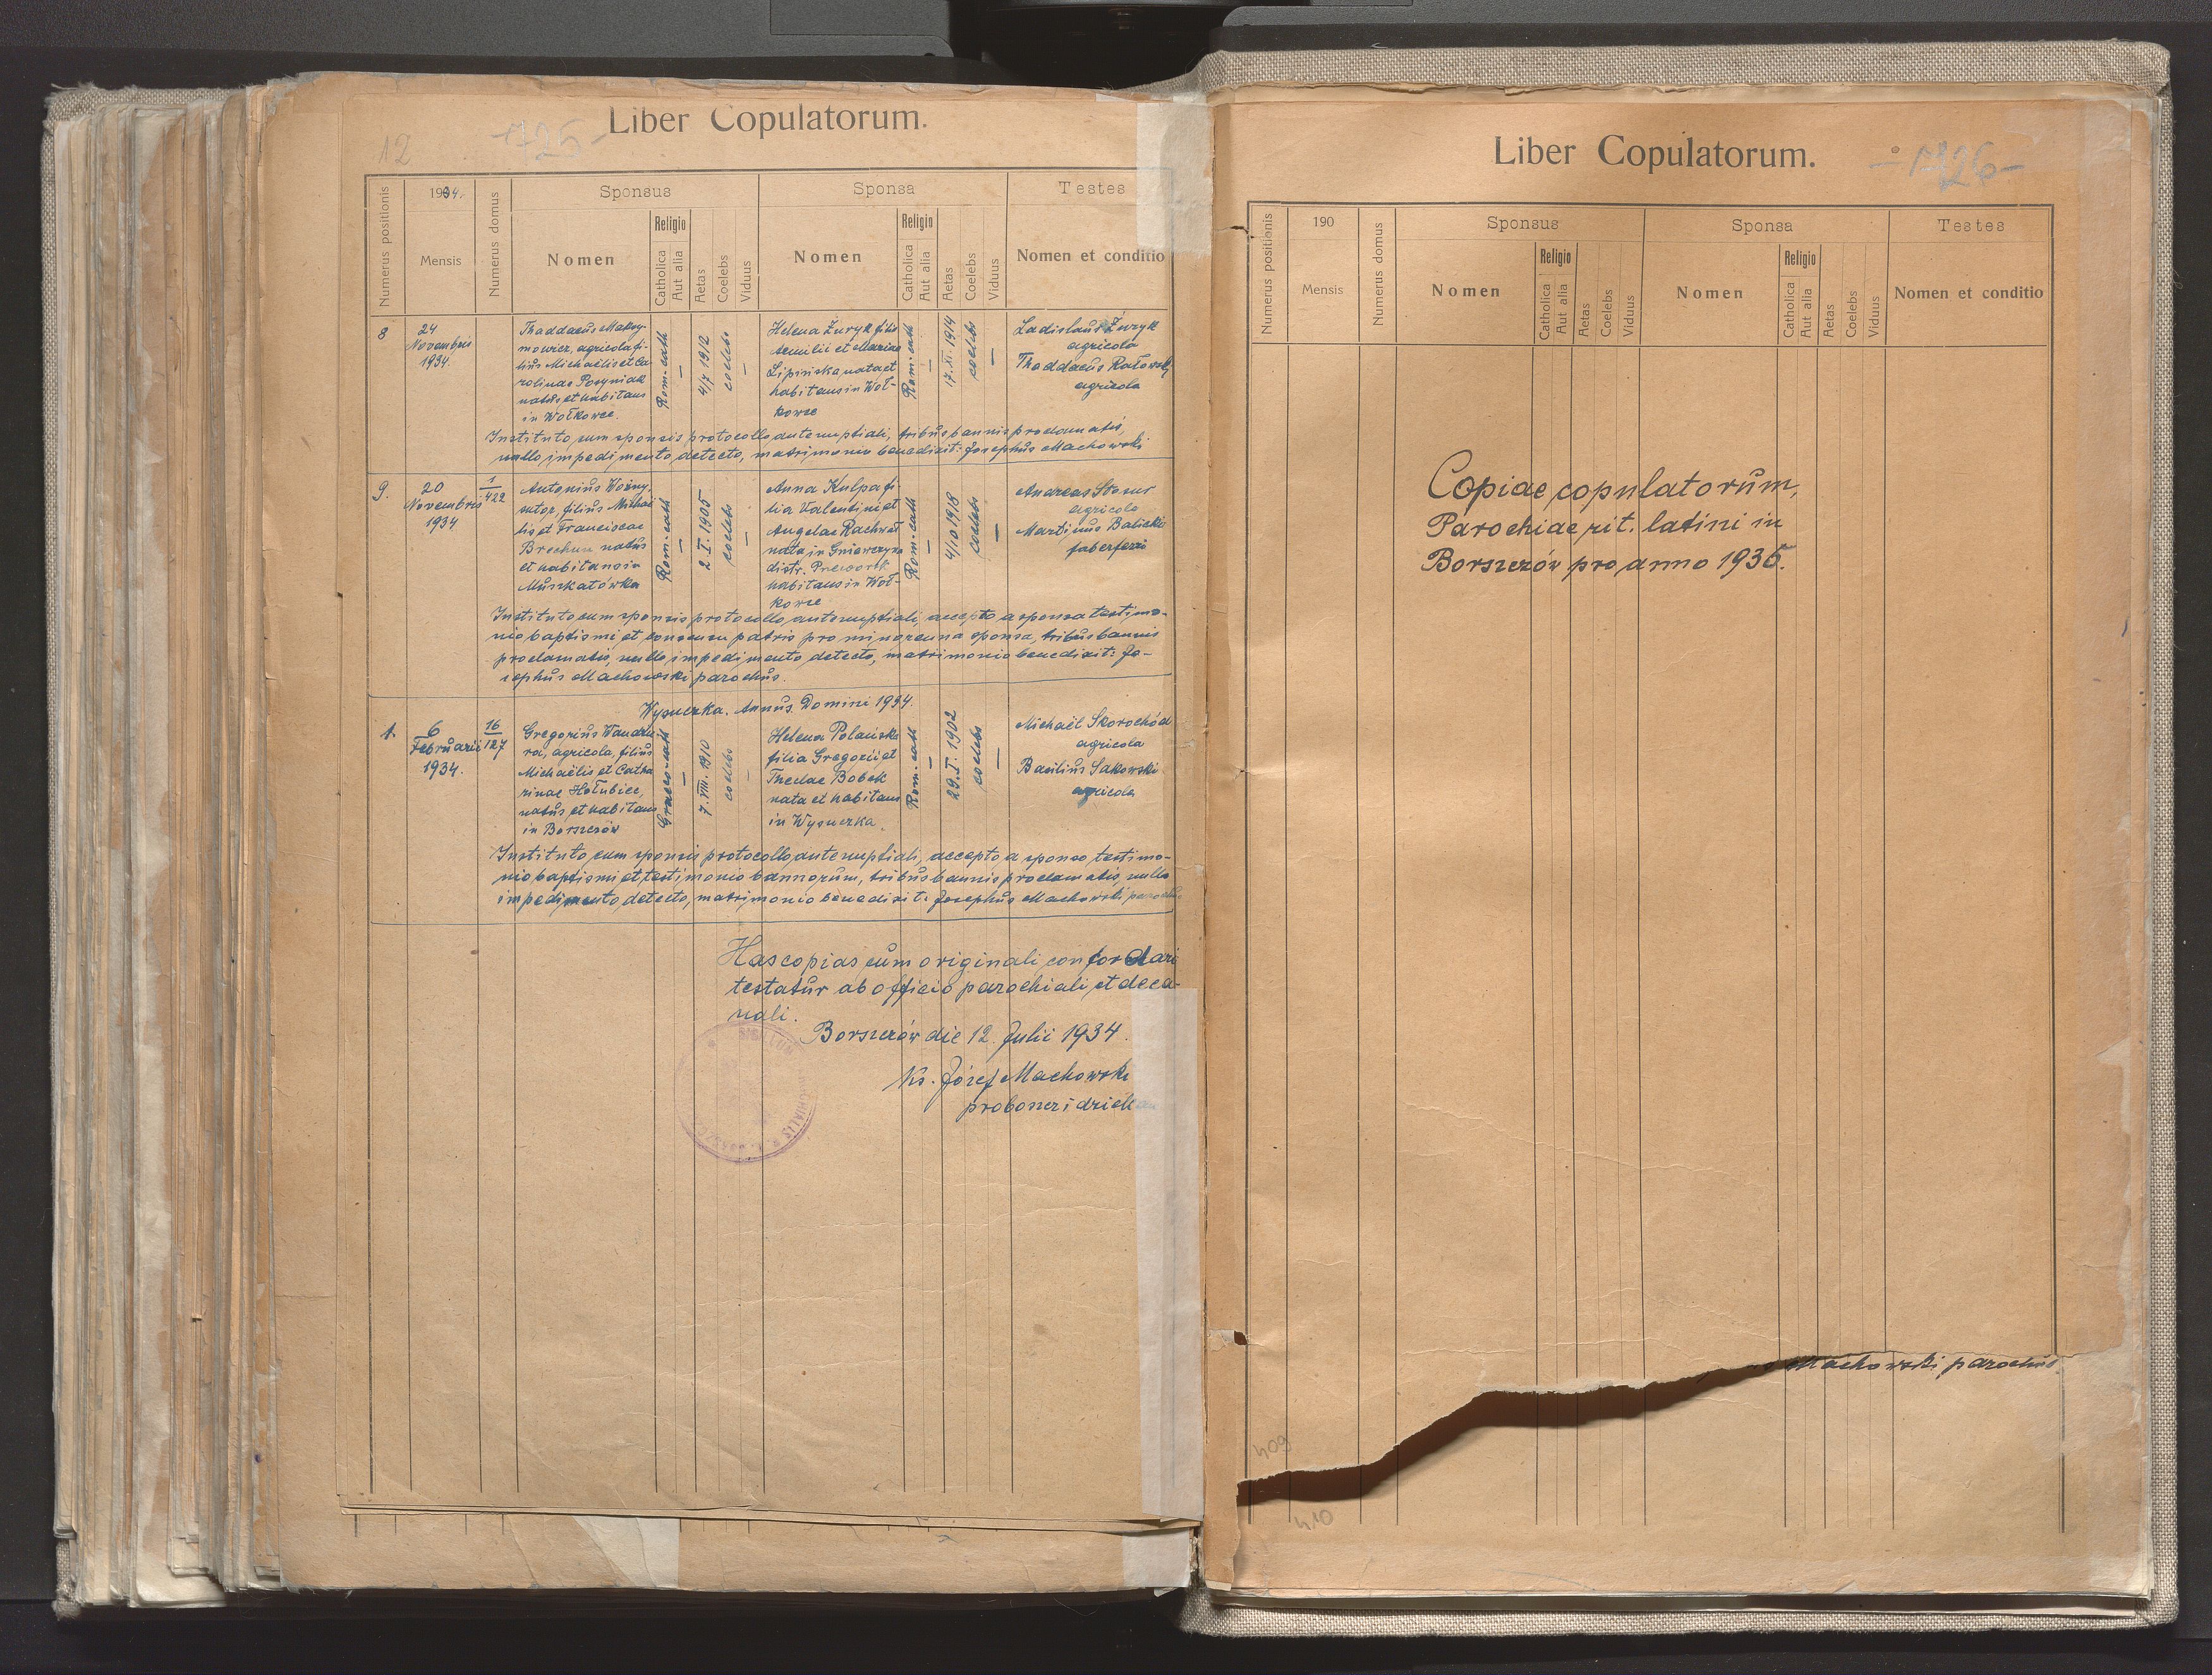 Liber Copulatorum.
12
-725-
Numerus positionis
1934.
Mensis
Numerus domus
Sponsus
Nomen
Religio
Catholica
Aut alia
Aetas
Coelebs
Viduus
Sponsa
Nomen
Religio
Catholica
Aut alia
Aetas
Coelebs
Viduus
Testes
Nomen et conditio
8
24
Novembris
1934.
Thaddaeus Maksy-
mowicz, agricola fi-
lius Michaëlis et Ca
rolinae Posyniak
natus et habitans
in Wołkowce.
Rom-cath
—
4/7 1912
coelebs
—
Helena Żuryk filia
Aemilii et Mariae
Lipińska nata et
habitans in Woł-
kowce
Rom-cath
—
17. XI. 1914
coelebs
—
Ladislaus Żuryk
agricola
Thaddaeus
agricola
Instituto cum sponsis protocollo antenuptiali, tribus bannis proclamatis,
nullo impedimento detecto, matrimonio benedixit: Josephus Machowski
9.
20
Novembris
1934
1
422
Antonius Woźny,
sutor, filius Michaë
lis et Franciscae
Brechun natus
et habitans in
Muszkatówka
Rom-cath
—
2 I. 1905
coelebs
—
Anna Kulpa fi-
lia Valentini et
Angelae Rachwał
nata in Gniewczyna
distr. Przeworsk
habitans in Woł-
kowce
Rom-cath
—
4/10 1918
coelebs
—
Andreas
agricola
Martinus Balicki
faber ferri
Instituto cum sponsis protocollo antenuptiali, accepto a sponsa testimo-
nio baptismi et consensu patris pro minorenna sponsa, tribus bannis
proclamatis, nullo impedimento detecto, matrimonio benedixit: Jo-
sephus Machowski parochus.
Wysuczka. Annus Domini 1934.
1.
6
Februarii
1934.
16
127
Gregorius Wandziu-
ra, agricola, filius
Michaëlis et Catha
rinae Hołubiec,
natus et habitans
in Borszczów
Graeco-cath
—
7. VIII. 1910
coelebs
—
Helena Polańska
filia Gregorii et
Theclae Bobek
nata et habitans
in Wysuczka.
Rom-cath
—
29. I. 1902
coelebs
—
Michaël Skorochód
agricola
Basilius Sakowski
agricola
Instituto cum sponsis protocollo antenuptiali, accepto a sponso testimo-
nio baptismi et testimonio bannorum, tribus bannis proclamatis, nullo
impedimento detecto, matrimonio benedixit: Josephus Machowski parochus
Has copias cum originali concordari
testatur ab officio parochiali et deca-
nali.
Borszczów die 12. Julii 1934.
Ks. Józef Machowski
proboszcz i dziekan
Liber Copulatorum.
-726-
Numerus positionis
190
Mensis
Numerus domus
Sponsus
Nomen
Religio
Catholica
Aut alia
Aetas
Coelebs
Viduus
Sponsa
Nomen
Religio
Catholica
Aut alia
Aetas
Coelebs
Viduus
Testes
Nomen et conditio
Copiae copulatorum,
Parochiae rit. latini in
Borszczów pro anno 1935.
Machowski parochus
409
410